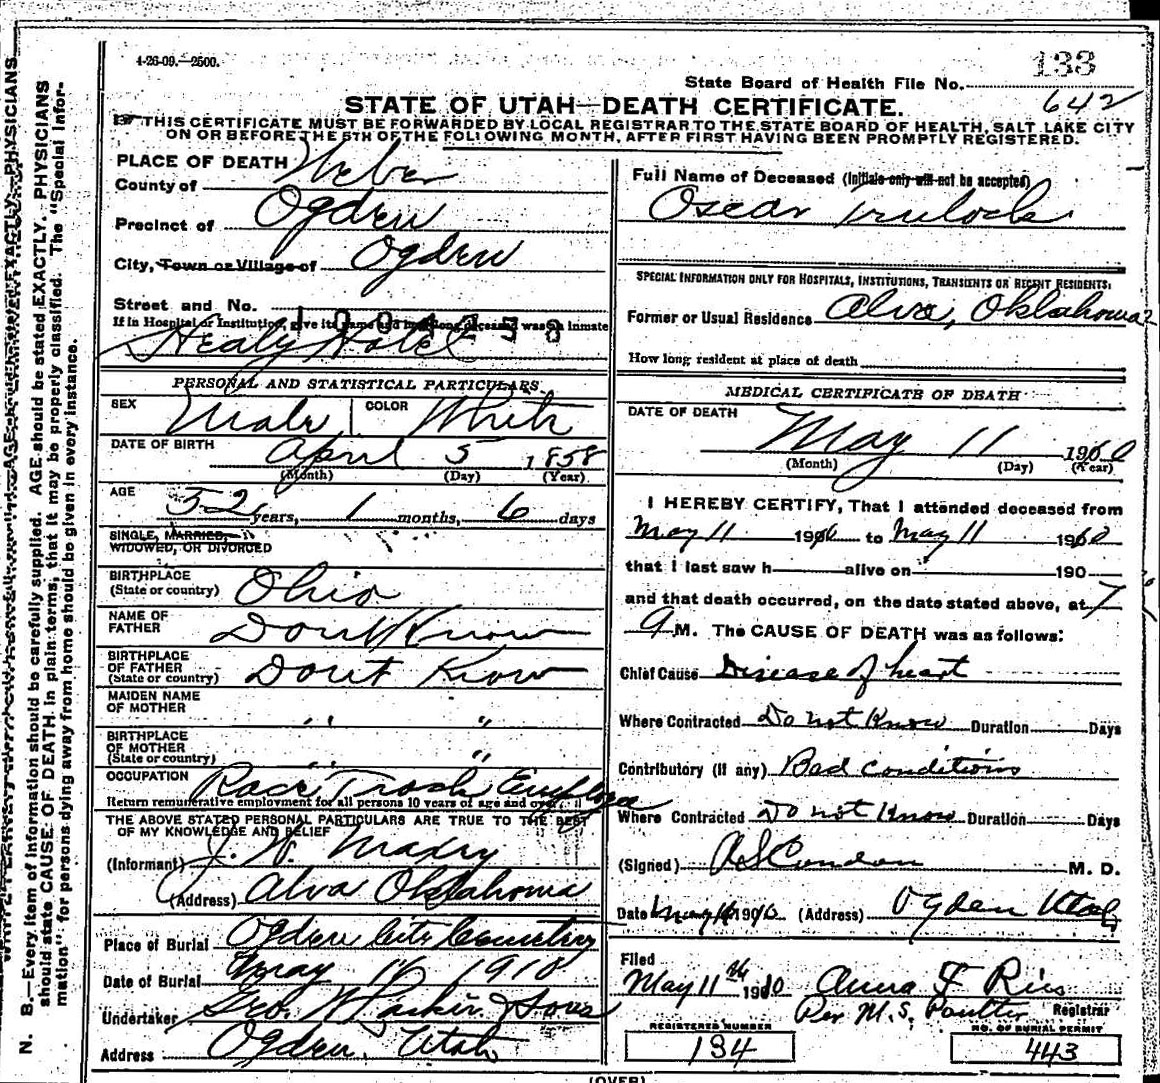 4-26-09.—2500.
133
State Board of Health File No.
642
STATE OF UTAH—DEATH CERTIFICATE.
THIS CERTIFICATE MUST BE FORWARDED BY LOCAL REGISTRAR TO THE STATE BOARD OF HEALTH, SALT LAKE CITY
ON OR BEFORE THE 5TH OF THE FOLLOWING MONTH, AFTER FIRST HAVING BEEN PROMPTLY REGISTERED.
PLACE OF DEATH
County of Weber
Precinct of Ogden
City, Town or Village of Ogden
Street and No.
If in Hospital or Institution, give its name and how long deceased was an inmate
Healy Hotel
PERSONAL AND STATISTICAL PARTICULARS.
SEX Male COLOR White
DATE OF BIRTH April 5 1858
(Month) (Day) (Year)
AGE 52 years, 1 months, 6 days
SINGLE, MARRIED,
WIDOWED, OR DIVORCED
BIRTHPLACE
(State or country) Ohio
NAME OF
FATHER Dont Know
BIRTHPLACE
OF FATHER
(State or country) Dont Know
MAIDEN NAME
OF MOTHER " "
BIRTHPLACE
OF MOTHER
(State or country) " "
OCCUPATION Race Track Employee
Return remunerative employment for all persons 10 years of age and over.
THE ABOVE STATED PERSONAL PARTICULARS ARE TRUE TO THE BEST
OF MY KNOWLEDGE AND BELIEF
(Informant) J. W. Madry
(Address) Alva Oklahoma
Place of Burial Ogden City Cemetery
Date of Burial May 16 1910
Undertaker Geo. W Larkin & Sons
Address Ogden, Utah
Full Name of Deceased (Initials only will not be accepted)
Oscar Trulock
SPECIAL INFORMATION ONLY FOR HOSPITALS, INSTITUTIONS, TRANSIENTS OR RECENT RESIDENTS:
Former or Usual Residence Alva, Oklahoma
How long resident at place of death
MEDICAL CERTIFICATE OF DEATH
DATE OF DEATH
May 11 1910
(Month) (Day) (Year)
I HEREBY CERTIFY, That I attended deceased from
May 11 1910 to May 11 1910
that I last saw h alive on 190
and that death occurred, on the date stated above, at 7
A M. The CAUSE OF DEATH was as follows:
Chief Cause Disease of heart
Where Contracted Do not Know Duration Days
Contributory (if any) Bad conditions
Where Contracted Do not Know Duration Days
(Signed) A S Condon M. D.
Date May 1910 (Address) Ogden Utah
Filed
May 11th 1910 Anna F Ries
Per M. S. Poulter Registrar
REGISTERED NUMBER
134
NO. OF BURIAL PERMIT
443
(OVER)
N. B.—Every item of information should be carefully supplied. AGE should be stated EXACTLY. PHYSICIANS
should state CAUSE OF DEATH in plain terms, that it may be properly classified. The "Special Infor-
mation" for persons dying away from home should be given in every instance.